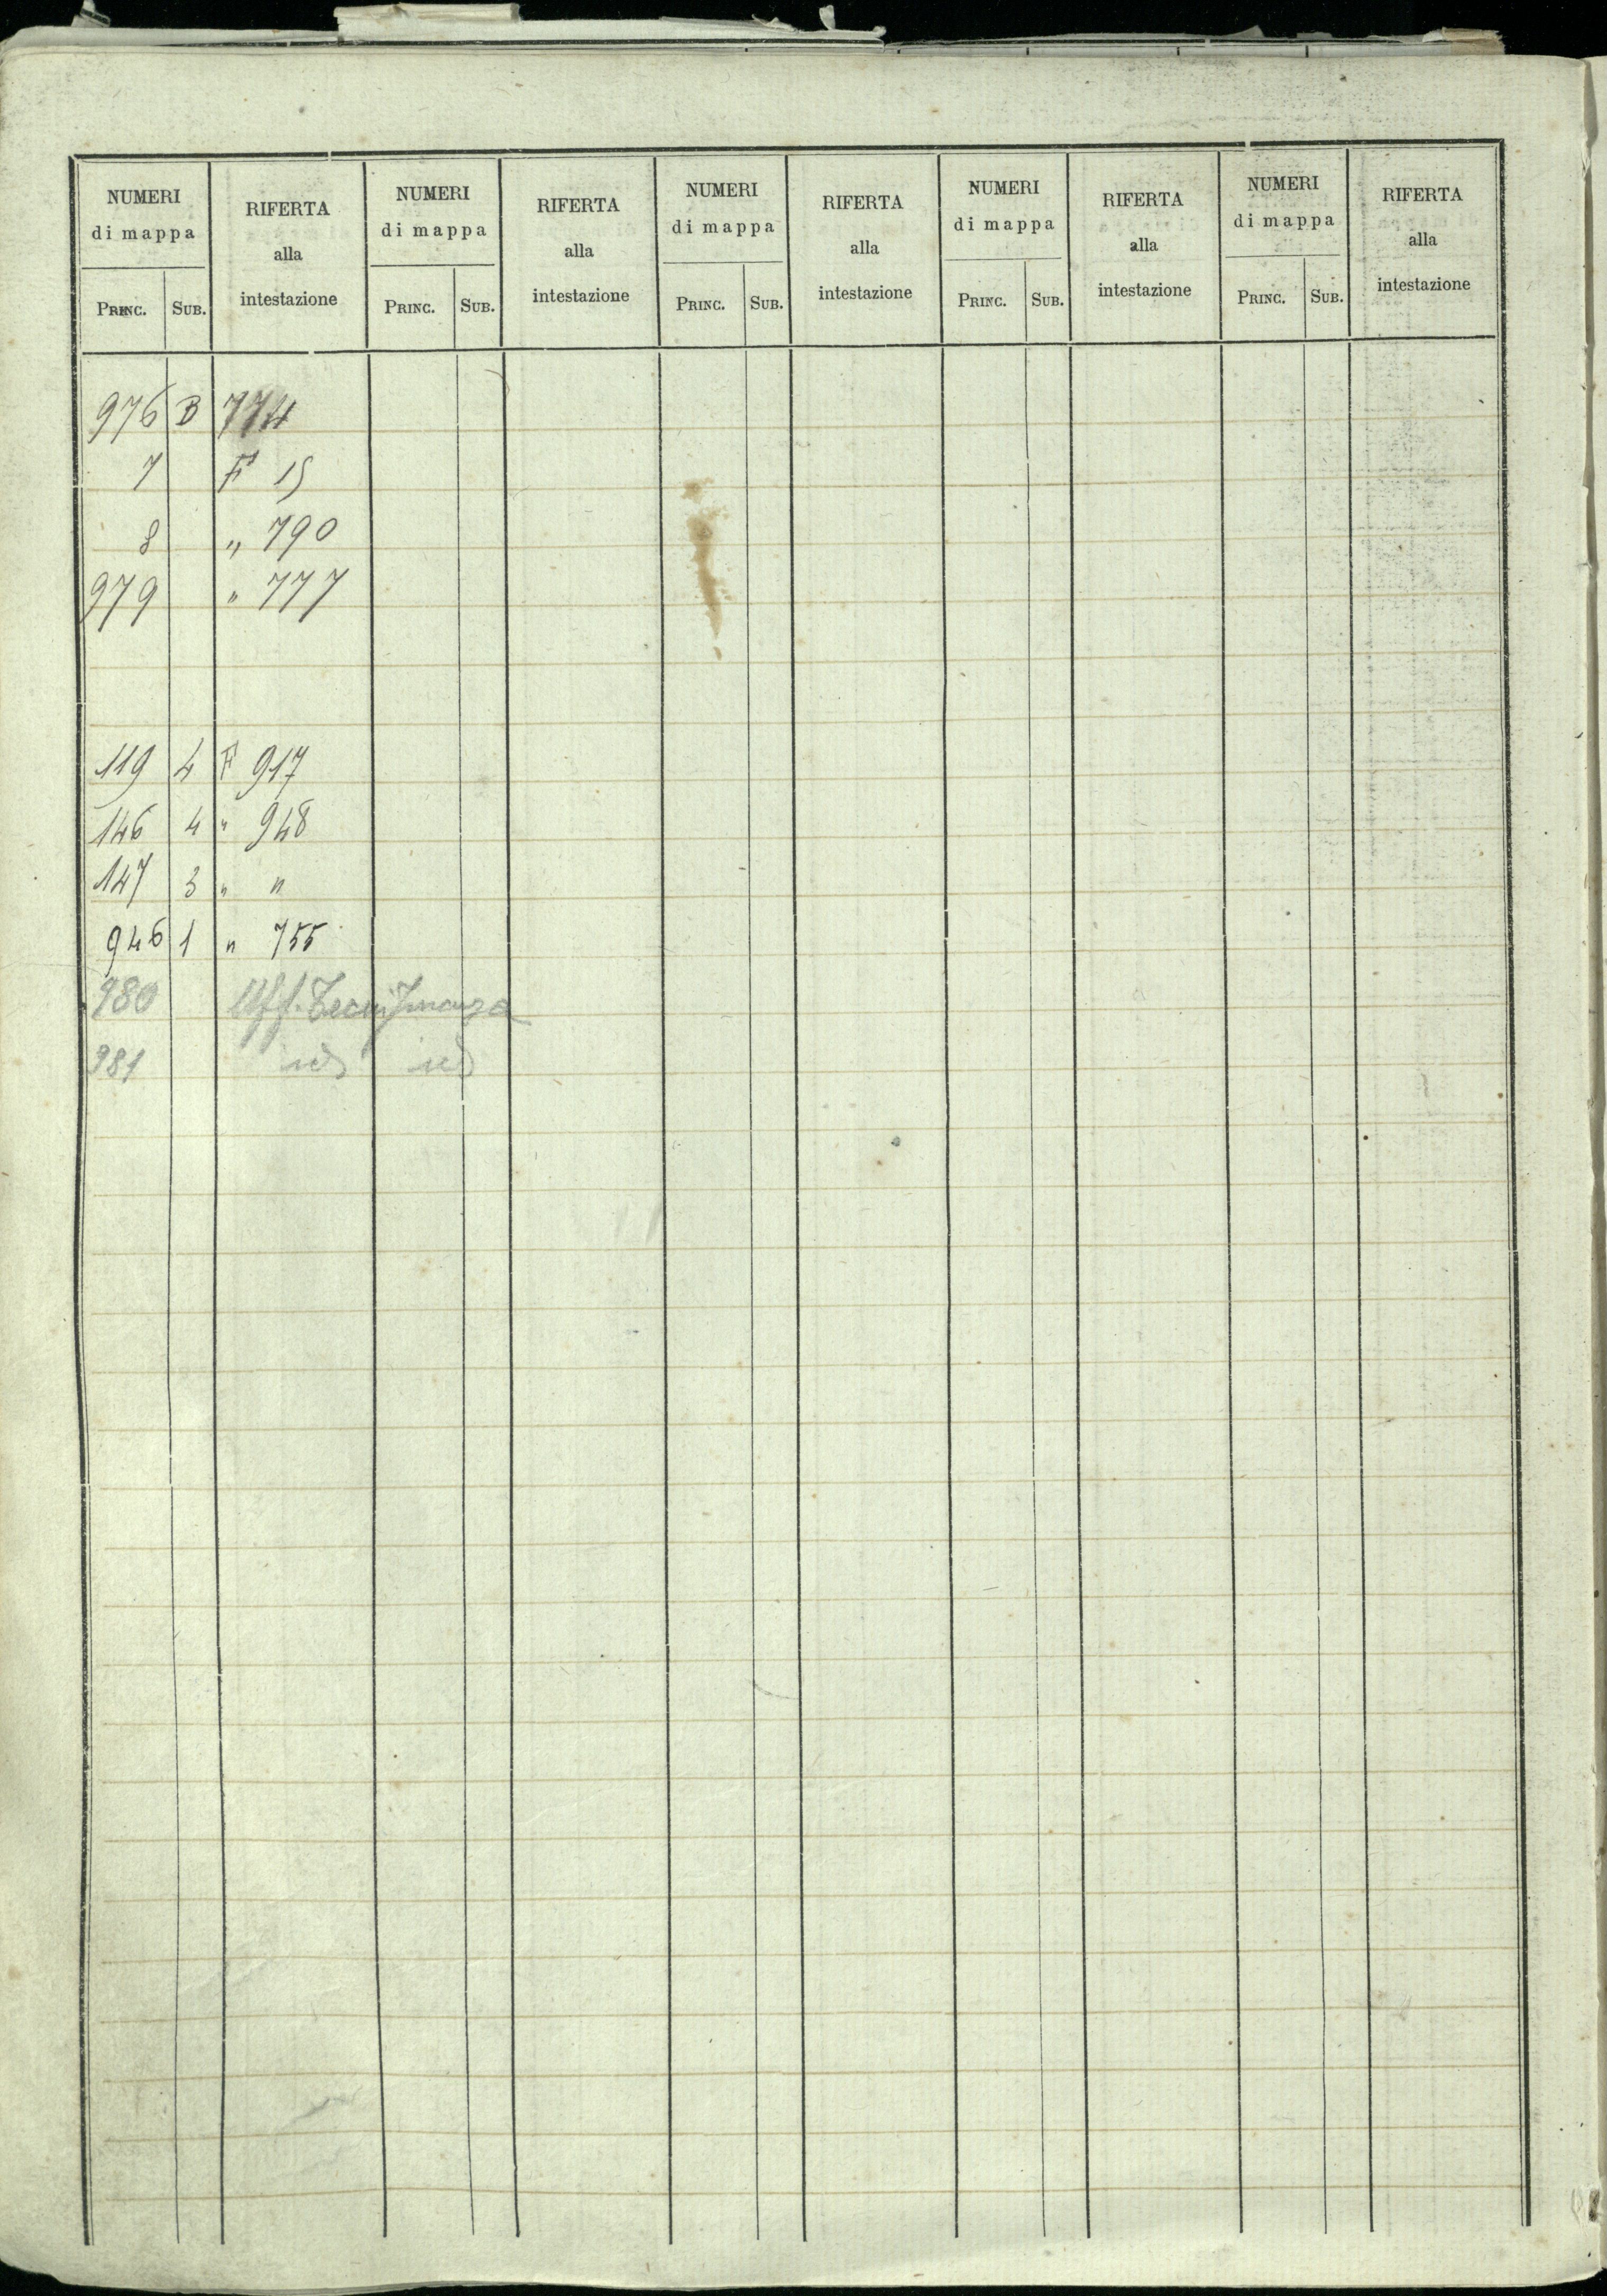 NUMERI di mappa RIFERTA alla intestazione NUMERI di mappa RIFERTA alla intestazione NUMERI di mappa RIFERTA alla intestazione NUMERI di mappa RIFERTA alla intestazione NUMERI di mappa RIFERTA alla intestazione
PRINC. SUB. PRINC. SUB. PRINC. SUB. PRINC. SUB. PRINC. SUB.
976 B 774
7 F 15
8 „ 790
979 „ 777
119 4 F 917
146 4 „ 948
147 3 „ „
946 1 „ 755
980 Uff. Tecn
981 id id